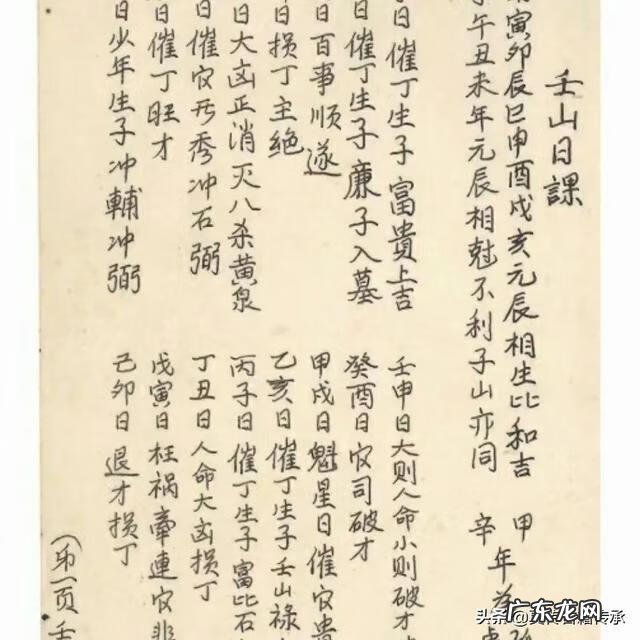 壬山日課
寅卯辰巳申酉戌亥元辰相生比和吉
午丑未年元辰相尅不利子山亦同
甲年
辛
日催丁生子富貴上吉
日催丁生子廉子入墓
日百事顺遂
日损丁主绝
日大凶正消灭八杀黄泉
日催官升秀冲石弼
日催丁旺才
日少年生子冲輔冲弼
壬申日大则人命小则破才
癸酉日官司破才
甲戌日魁星日催官贵
乙亥日催丁生子壬山禄
丙子日催丁生子富比石
丁丑日人命大凶损丁
戊寅日枉祸牵連官非
己卯日退才损丁
(第一页壬
头条
广东龙网
www.gdchaT.com